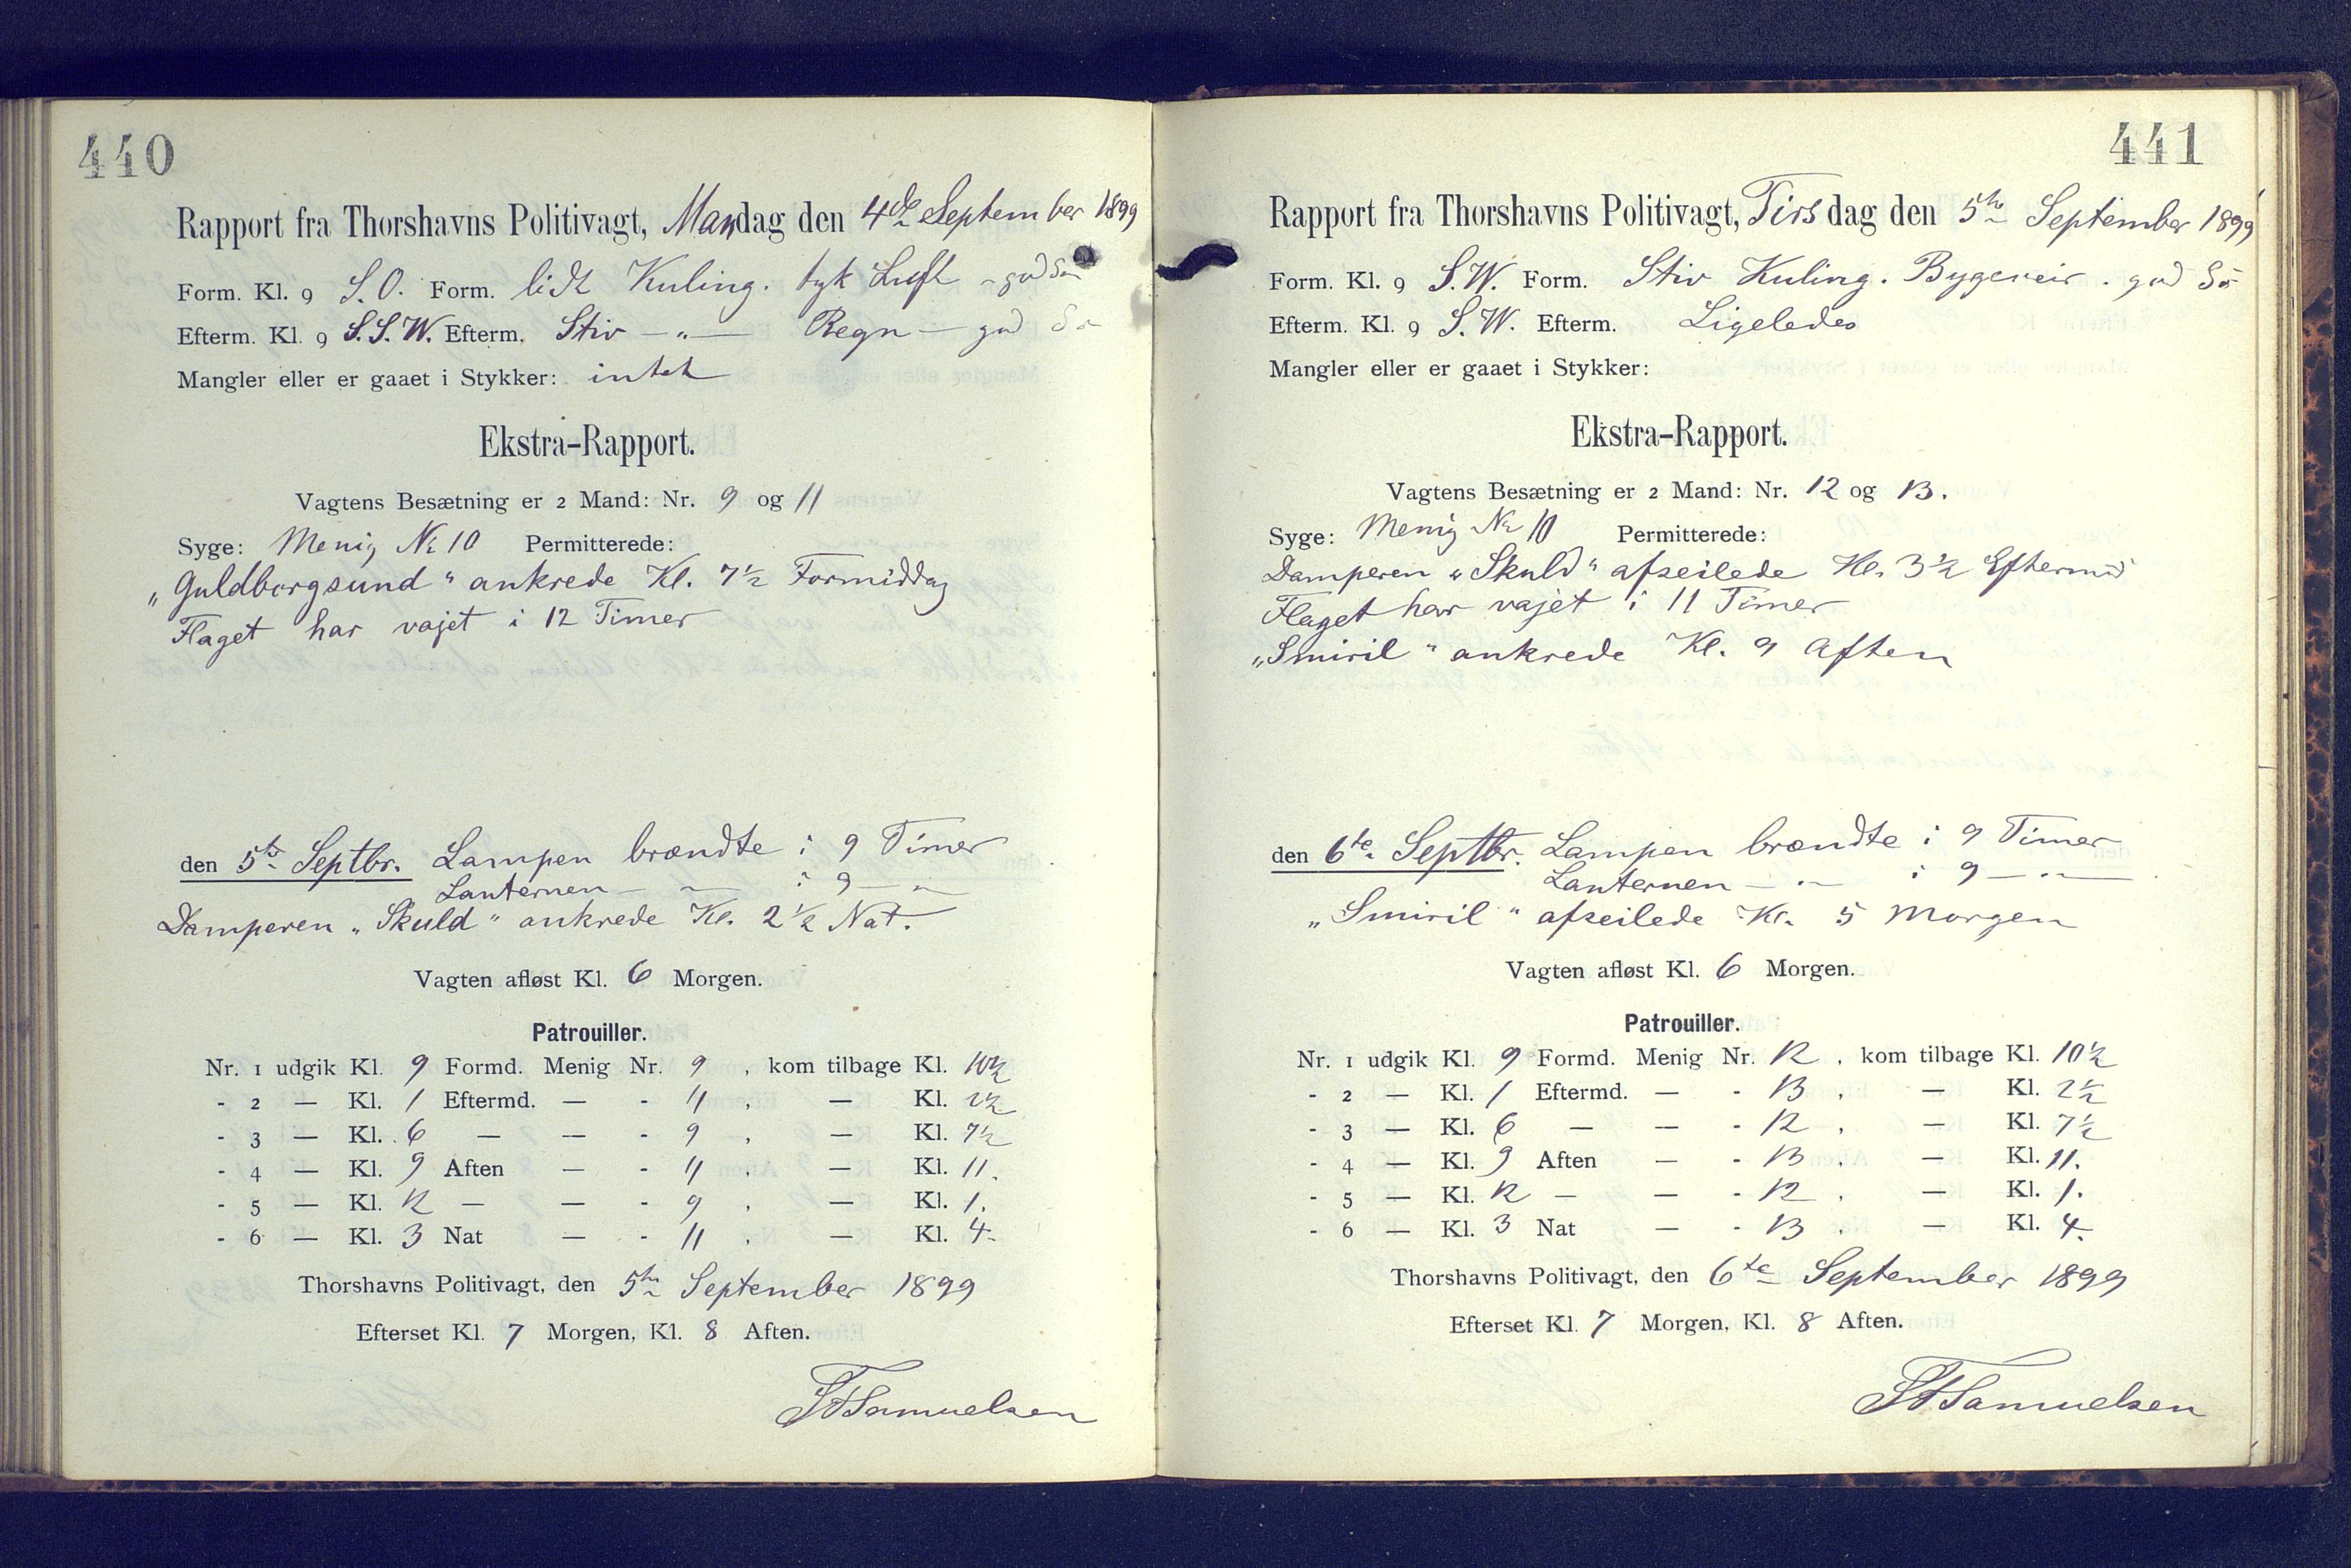 440
Rapport fra Thorshavns Politivagt, Mandag den 4de September 1899
Form. Kl. 9 S.O. Form. lidt Kuling. tyk Luft - god Sø
Efterm. Kl. 9 S.S.W. Efterm. Stiv —"— Regn — god Sø
Mangler eller er gaaet i Stykker: intet
Ekstra-Rapport.
Vagtens Besætning er 2 Mand: Nr. 9 og 11
Syge: Menig Nr 10 Permitterede:
"Guldborgsund" ankrede Kl. 7½ Formiddag
Flaget har vajet i 12 Timer
den 5te Septbr. Lampen brændte i 9 Timer
Lanternen — " — i 9 — " —
Damperen "Skuld" ankrede Kl. 2½ Nat.
Vagten afløst Kl. 6 Morgen.
Patrouiller.
Nr. 1 udgik Kl. 9 Formd. Menig Nr. 9, kom tilbage Kl. 10½
- 2 — Kl. 1 Eftermd. — - 11, — Kl. 2½
- 3 — Kl. 6 — — - 9, — Kl. 7½
- 4 — Kl. 9 Aften — - 11, — Kl. 11.
- 5 — Kl. 12 — — - 9, — Kl. 1.
- 6 — Kl. 3 Nat — - 11, — Kl. 4.
Thorshavns Politivagt, den 5te September 1899
Efterset Kl. 7 Morgen, Kl. 8 Aften.
Samuelsen
441
Rapport fra Thorshavns Politivagt, Tirsdag den 5te September 1899
Form. Kl. 9 S.W. Form. Stiv Kuling. Bygeveir. god Sø
Efterm. Kl. 9 S.W. Efterm. Ligeledes
Mangler eller er gaaet i Stykker:
Ekstra-Rapport.
Vagtens Besætning er 2 Mand: Nr. 12 og 13.
Syge: Menig Nr 10 Permitterede:
Damperen "Skuld" afseilede Kl. 3½ Eftermd
Flaget har vajet i 11 Timer
"Smiril" ankrede Kl. 9 Aften
den 6te Septbr. Lampen brændte i 9 Timer
Lanternen — " — i 9 — " —
"Smiril" afseilede Kl. 5 Morgen
Vagten afløst Kl. 6 Morgen.
Patrouiller.
Nr. 1 udgik Kl. 9 Formd. Menig Nr. 12, kom tilbage Kl. 10½
- 2 — Kl. 1 Eftermd. — - 13, — Kl. 2½
- 3 — Kl. 6 — — - 12, — Kl. 7½
- 4 — Kl. 9 Aften — - 13, — Kl. 11.
- 5 — Kl. 12 — — - 12, — Kl. 1.
- 6 — Kl. 3 Nat — - 13, — Kl. 4.
Thorshavns Politivagt, den 6te September 1899
Efterset Kl. 7 Morgen, Kl. 8 Aften.
Samuelsen